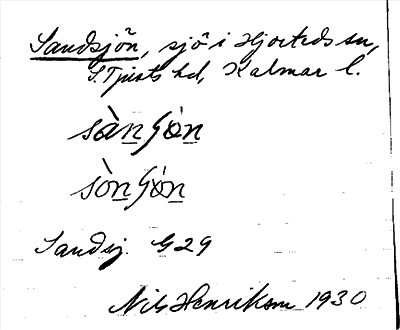 Sandsjön, sjö i Hjorteds sn,
S. Tjusts hd, Kalmar l.
sànʃön
sònʃön
Sandsj. G29
Nils Henrikson 1930